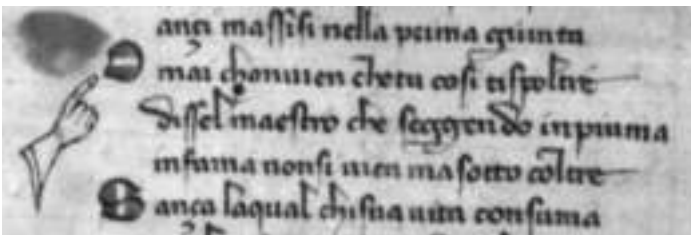 ançi massisi nella prima giunta
O mai chonuien chetu cosi tispoltre
dissel maestro che seggendo inpiuma
infama nonsi uien ma sotto coltre
S ança laqual chisua uita consuma